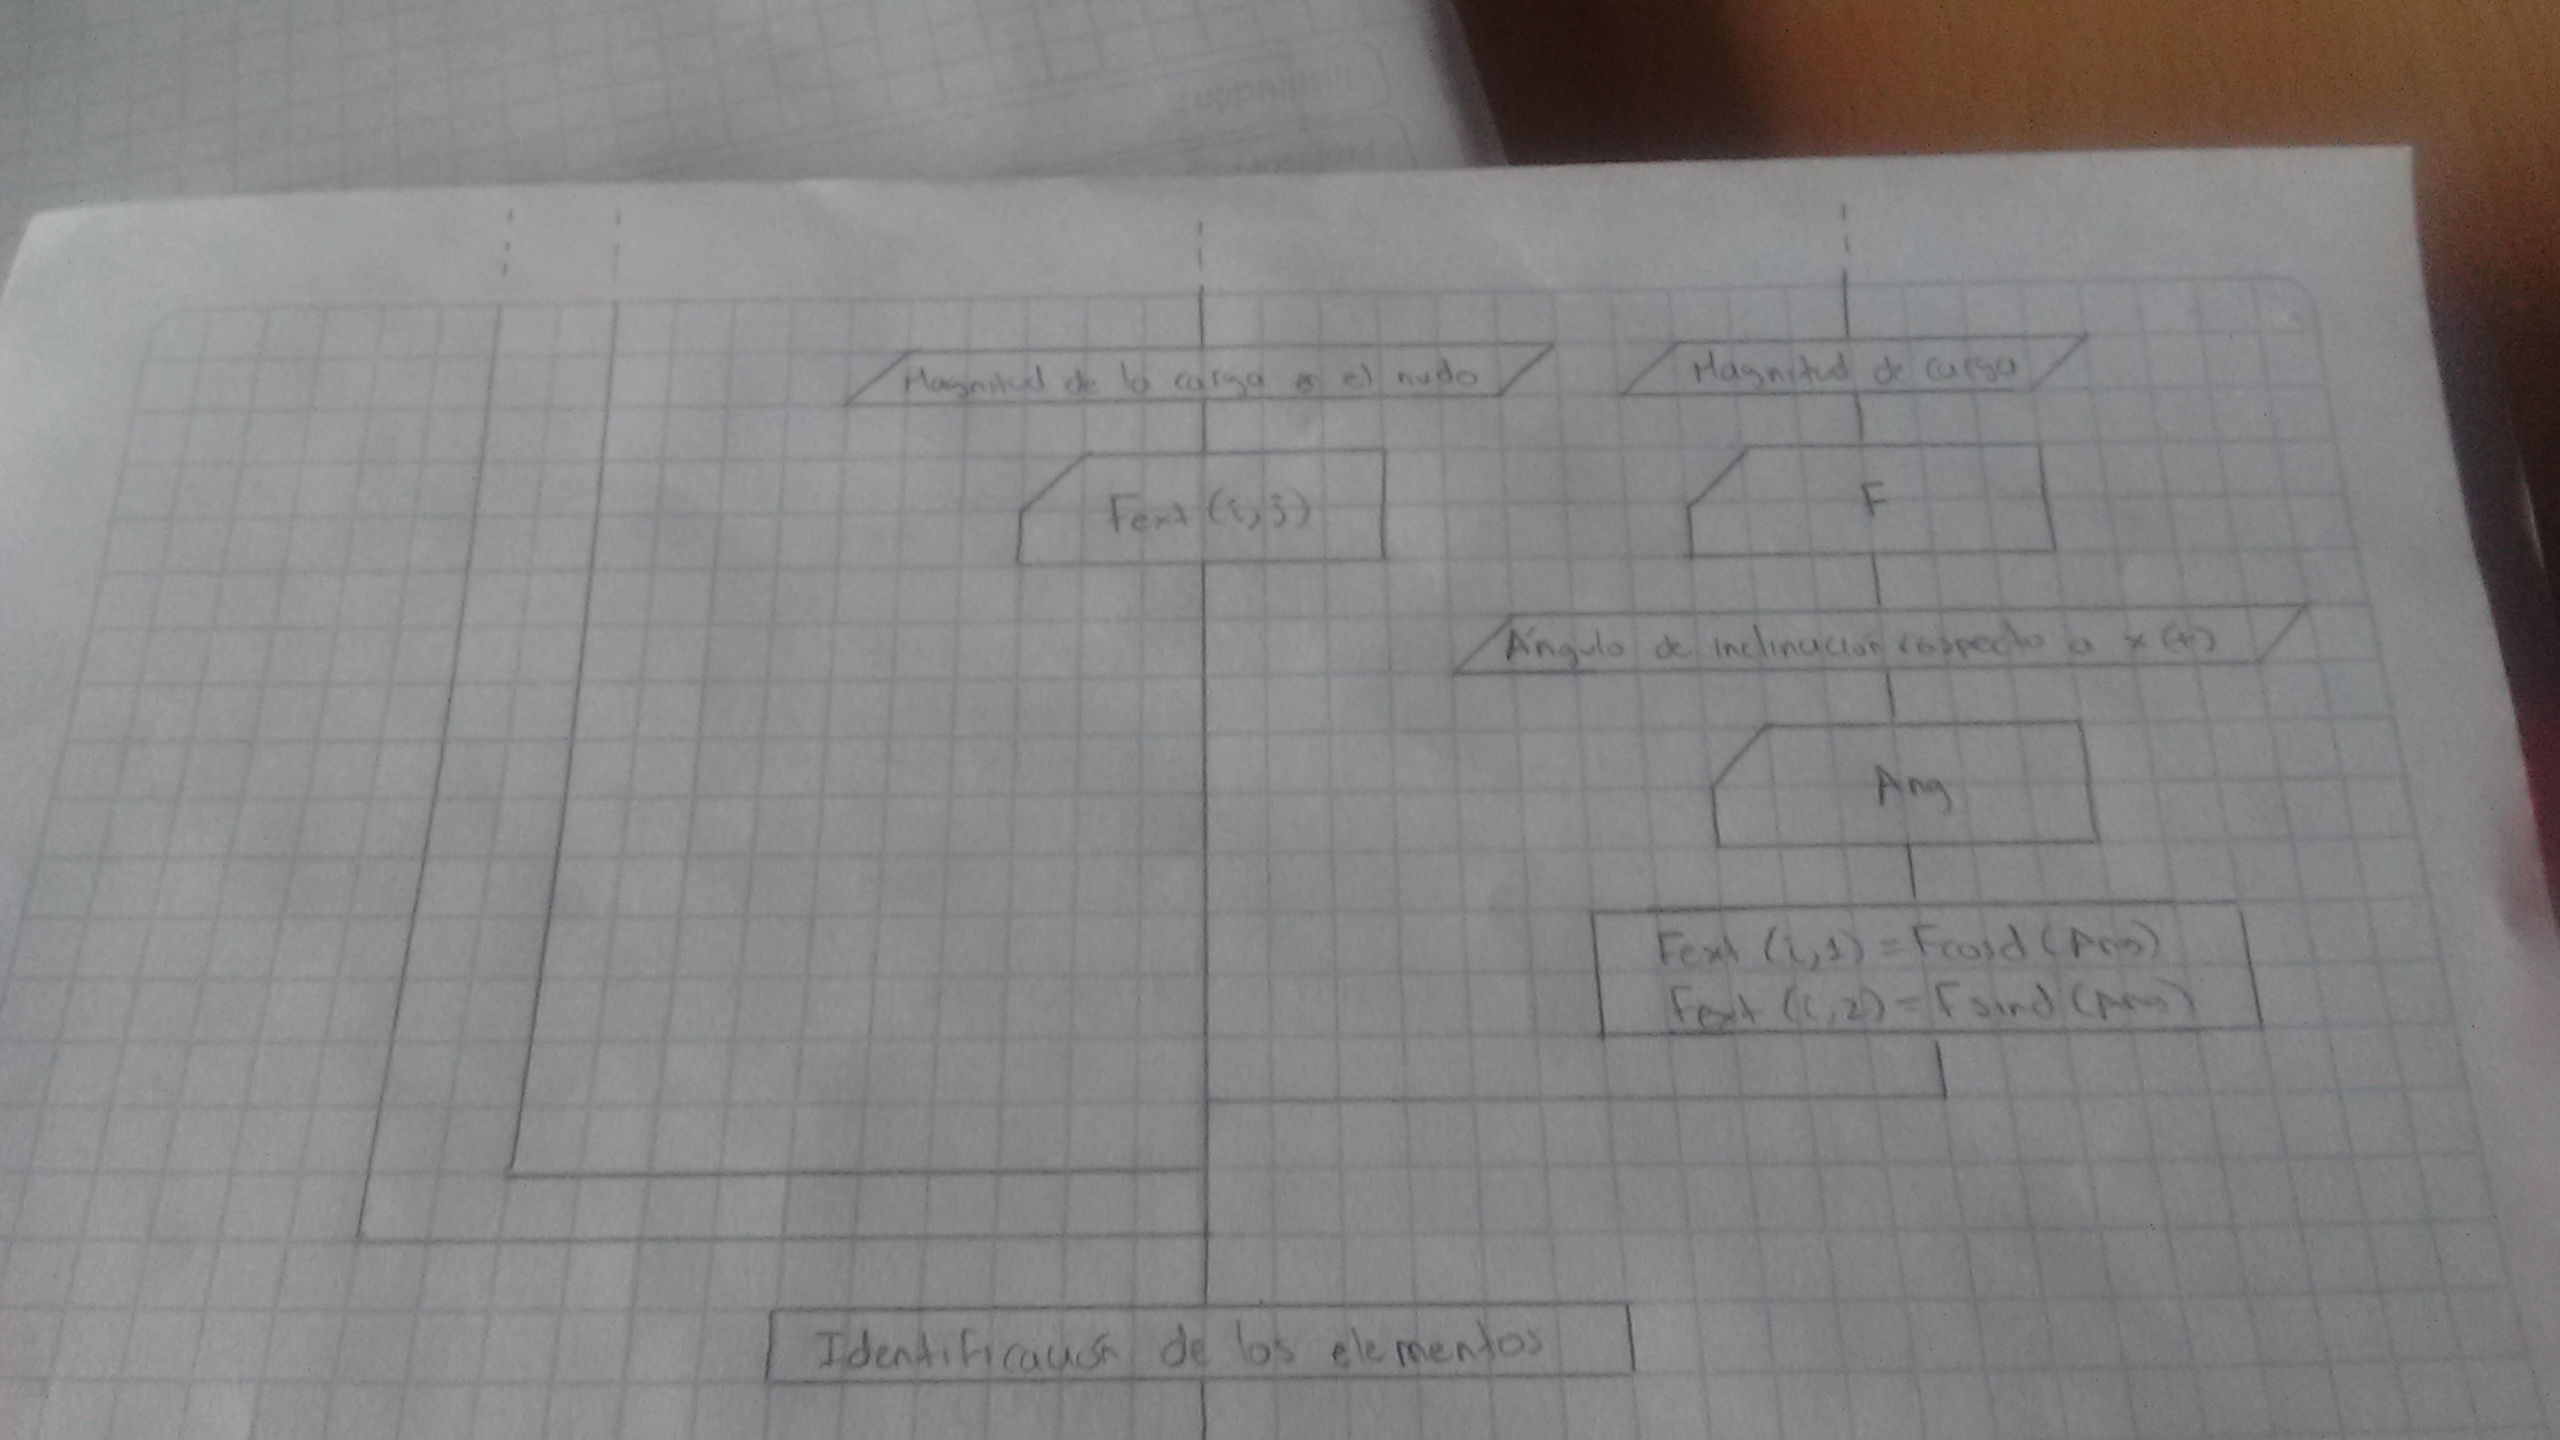 Magnitud de la carga en el nudo
Magnitud de carga
Fext (i,j)
F
Ángulo de inclinación respecto a x(+)
Ang
Fext (i,1) = Fcosd (Ang)
Fext (i,2) = Fsind (Ang)
Identificación de los elementos